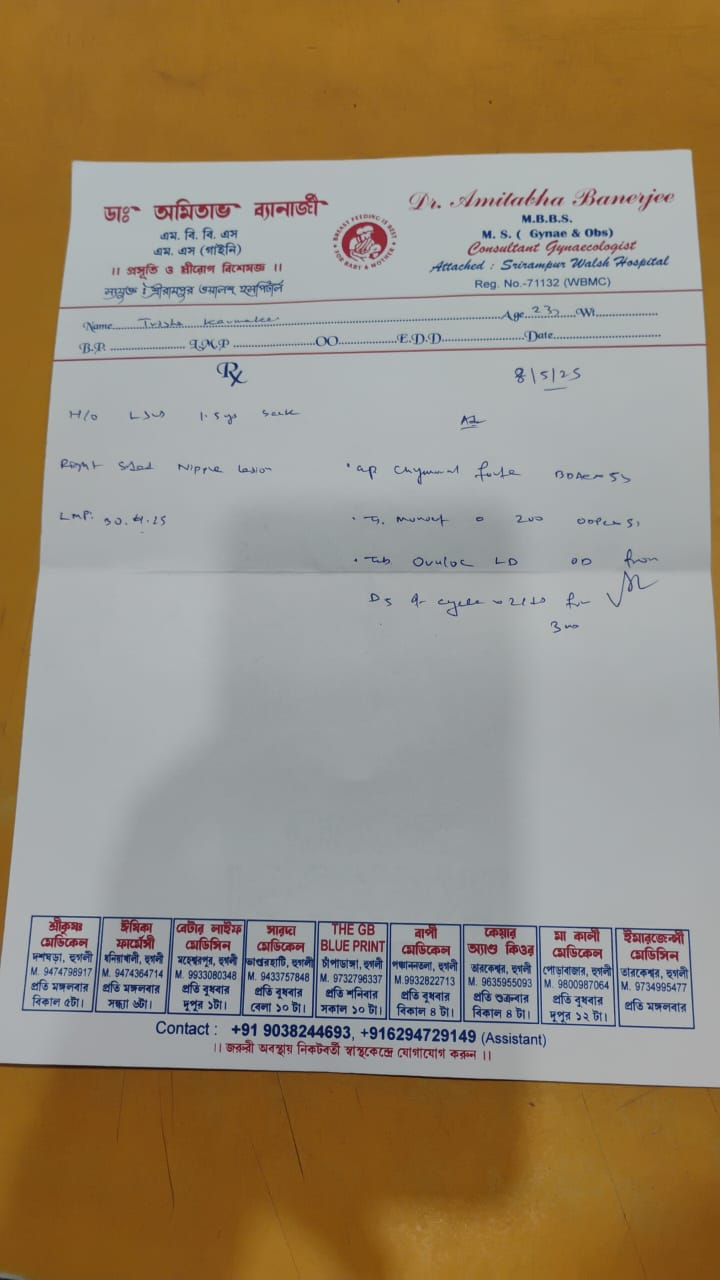 ডাঃ অমিতাভ ব্যানার্জী
এম. বি. বি. এস
এম. এস (গাইনি)
।। প্রসূতি ও স্ত্রীরোগ বিশেষজ্ঞ ।।
সংযুক্ত : শ্রীরামপুর ওয়ালস্ হসপিটাল
BREAST FEEDING IS BEST
FOR BABY & MOTHER
Dr. Amitabha Banerjee
M.B.B.S.
M. S. ( Gynae & Obs)
Consultant Gynaecologist
Attached : Srirampur Walsh Hospital
Reg. No.-71132 (WBMC)
Name Trisha Age 23 Wt
B.P. L.M.P OO E.D.D Date
Rx
8/5/25
H/O 1.5 back
Adv
Right Nipple lesion
Forte
LMP: 30.4.25
200
Tab Ovuloc LD OD from
D5 of cycle x 21D for
3
শ্রীকৃষ্ণ
মেডিকেল
দশঘড়া, হুগলী
M. 9474798917
প্রতি মঙ্গলবার
বিকাল ৫টা।
ঈষিকা
ফার্মেসী
ধনিয়াখালী, হুগলী
M. 9474364714
প্রতি মঙ্গলবার
সন্ধ্যা ৬টা।
বেটার লাইফ
মেডিসিন
মহেশ্বরপুর, হুগলী
M. 9933080348
প্রতি বুধবার
দুপুর ১টা।
সারদা
মেডিকেল
ভাণ্ডারহাটি, হুগলী
M. 9433757848
প্রতি বুধবার
বেলা ১০ টা।
THE GB
BLUE PRINT
চাঁপাডাঙ্গা, হুগলী
M. 9732796337
প্রতি শনিবার
সকাল ১০ টা।
বাপী
মেডিকেল
পঞ্চাননতলা, হুগলী
M. 9932822713
প্রতি বুধবার
বিকাল ৪ টা।
কেয়ার
অ্যাণ্ড কিওর
তারকেশ্বর, হুগলী
M. 9635955093
প্রতি শুক্রবার
বিকাল ৪ টা।
মা কালী
মেডিকেল
পোড়াবাজার, হুগলী
M. 9800987064
প্রতি মঙ্গলবার
দুপুর ১২ টা।
ইমারজেন্সী
মেডিসিন
তারকেশ্বর, হুগলী
M. 9734995477
প্রতি মঙ্গলবার
Contact : +91 9038244693, +916294729149 (Assistant)
।। জরুরী অবস্থায় নিকটবর্তী স্বাস্থকেন্দ্রে যোগাযোগ করুন ।।